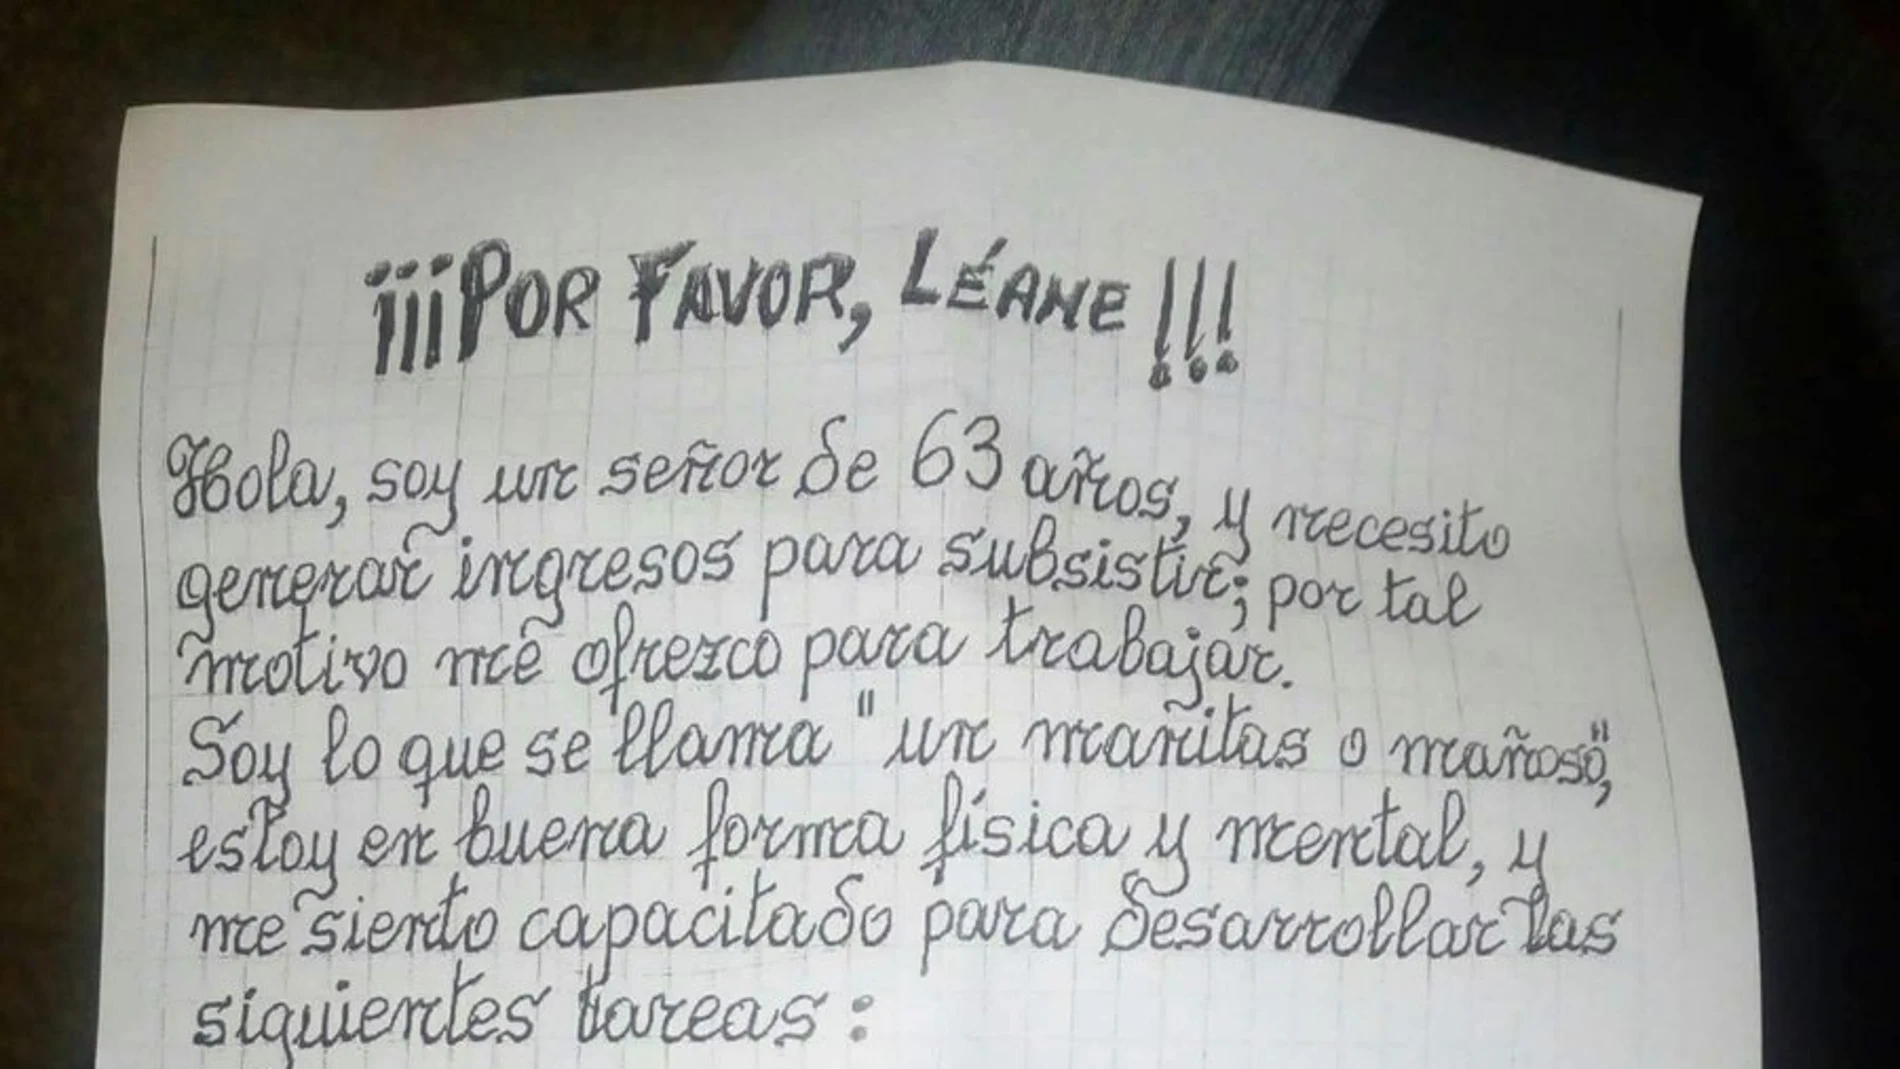 ¡¡¡POR FAVOR, LÉAME!!!
Hola, soy un señor de 63 años, y necesito
generar ingresos para subsistir; por tal
motivo me ofrezco para trabajar.
Soy lo que se llama "un mañitas o mañoso",
estoy en buena forma física y mental, y
me siento capacitado para desarrollar las
siguientes tareas: